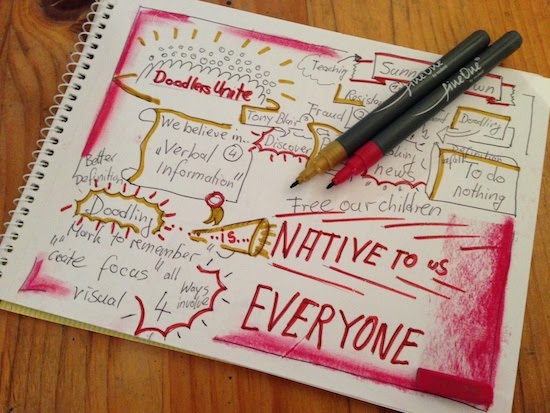 Doodlers Unite
Teaching
Sunn
wn
Resist
Fraud
Tony Blair
Discover
Doodling
news
definition
To do
nothing
We believe in...
"Verbal 4
Information"
Better
Definition
Doodling
...is...
Free our children
NATIVE TO US
EVERYONE
"Mark to remember"
"create focus" all
Ways
involve
visual 4
fineOne
fineOne